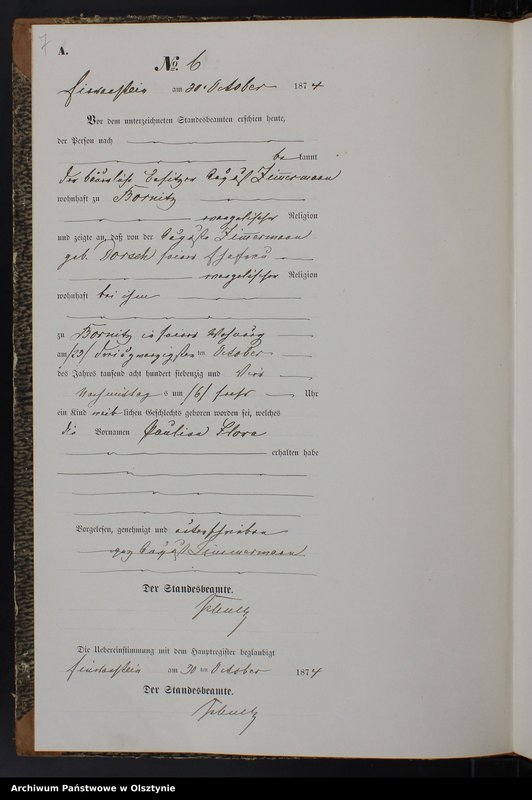 7
A.
№ 6
am 30. October 1874
Vor dem unterzeichneten Standesbeamten erschien heute,
der Person nach
be kannt
der bäuerliche Besitzer August Zimmermann
wohnhaft zu Bornitz
evangelischer Religion
und zeigte an, daß von der Auguste Zimmermann
geb. Dorsch seiner Ehefrau
evangelischer Religion
wohnhaft bei ihm
zu Bornitz in seiner Wohnung
am /23/ dreiundzwanzigsten ten October
des Jahres tausend acht hundert siebenzig und vier
Nachmittags um /6/ sechs Uhr
ein Kind weib lichen Geschlechts geboren worden sei, welches
die Vornamen Paulina Flora
erhalten habe
Vorgelesen, genehmigt und unterschrieben
gez August Zimmermann
Der Standesbeamte.
Die Uebereinstimmung mit dem Hauptregister beglaubigt
am 30 ten October 1874
Der Standesbeamte.
Archiwum Państwowe w Olsztynie